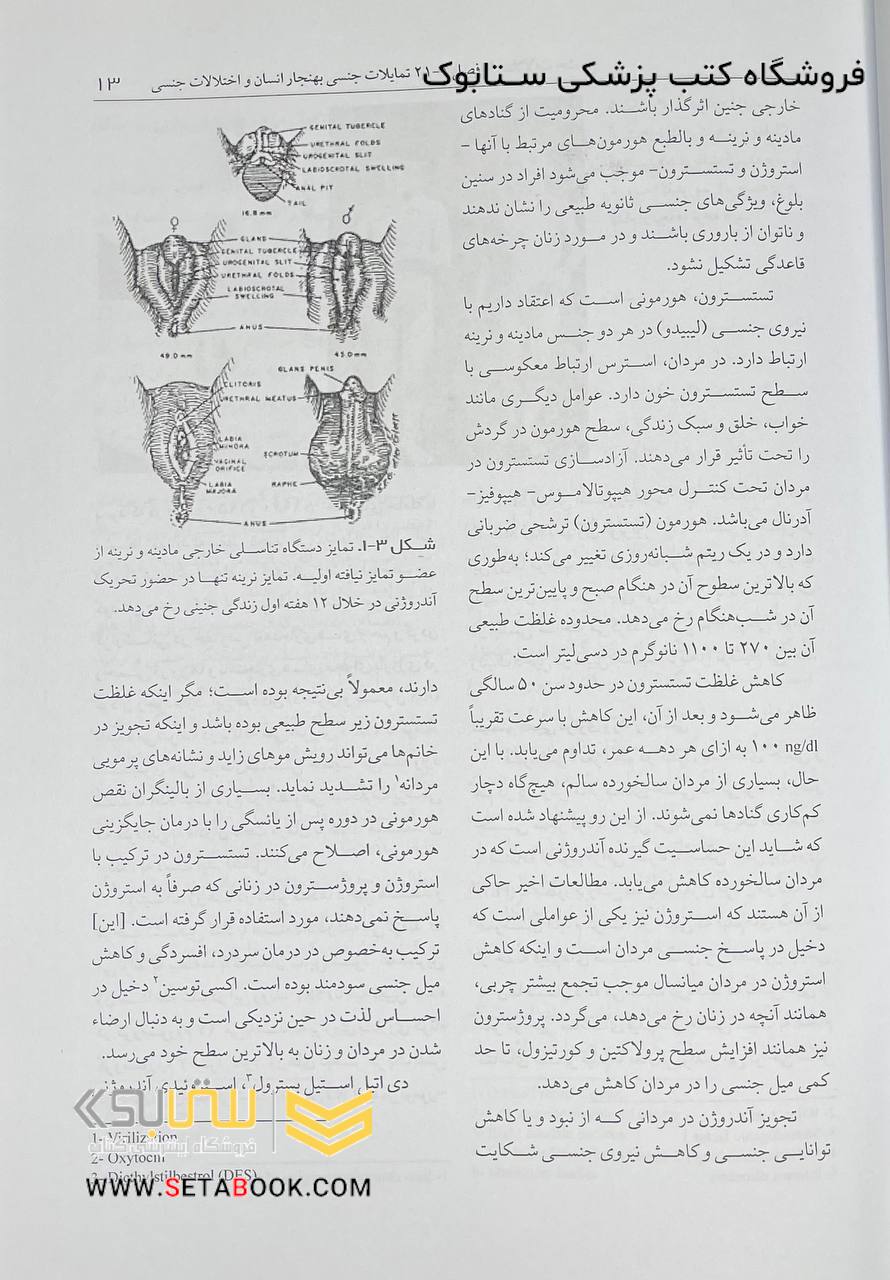 فروشگاه کتب پزشکی ستابوک
۲۱ تمایلات جنسی بهنجار انسان و اختلالات جنسی
۱۳
خارجی جنین اثرگذار باشند. محرومیت از گنادهای
مادینه و نرینه و بالطبع هورمون‌های مرتبط با آنها -
استروژن و تستسترون- موجب می‌شود افراد در سنین
بلوغ، ویژگی‌های جنسی ثانویه طبیعی را نشان ندهند
و ناتوان از باروری باشند و در مورد زنان چرخه‌های
قاعدگی تشکیل نشود.
تستسترون، هورمونی است که اعتقاد داریم با
نیروی جنسی (لیبیدو) در هر دو جنس مادینه و نرینه
ارتباط دارد. در مردان، استرس ارتباط معکوسی با
سطح تستسترون خون دارد. عوامل دیگری مانند
خواب، خلق و سبک زندگی، سطح هورمون در گردش
را تحت تأثیر قرار می‌دهند. آزادسازی تستسترون در
مردان تحت کنترل محور هیپوتالاموس- هیپوفیز-
آدرنال می‌باشد. هورمون (تستسترون) ترشحی ضربانی
دارد و در یک ریتم شبانه‌روزی تغییر می‌کند؛ به‌طوری
که بالاترین سطوح آن در هنگام صبح و پایین‌ترین سطح
آن در شب‌هنگام رخ می‌دهد. محدوده غلظت طبیعی
آن بین ۲۷۰ تا ۱۱۰۰ نانوگرم در دسی‌لیتر است.
کاهش غلظت تستسترون در حدود سن ۵۰ سالگی
ظاهر می‌شود و بعد از آن، این کاهش با سرعت تقریباً
۱۰۰ ng/dl به ازای هر دهه عمر، تداوم می‌یابد. با این
حال، بسیاری از مردان سالخورده سالم، هیچ‌گاه دچار
کم‌کاری گنادها نمی‌شوند. از این رو پیشنهاد شده است
که شاید این حساسیت گیرنده آندروژنی است که در
مردان سالخورده کاهش می‌یابد. مطالعات اخیر حاکی
از آن هستند که استروژن نیز یکی از عواملی است که
دخیل در پاسخ جنسی مردان است و اینکه کاهش
استروژن در مردان میانسال موجب تجمع بیشتر چربی،
همانند آنچه در زنان رخ می‌دهد، می‌گردد. پروژسترون
نیز همانند افزایش سطح پرولاکتین و کورتیزول، تا حد
کمی میل جنسی را در مردان کاهش می‌دهد.
تجویز آندروژن در مردانی که از نبود و یا کاهش
توانایی جنسی و کاهش نیروی جنسی شکایت
GENITAL TUBERCLE
URETHRAL FOLDS
UROGENITAL SLIT
LABIOSCROTAL SWELLING
ANAL PIT
TAIL
16.8 mm
♀ ♂
GLANS
GENITAL TUBERCLE
UROGENITAL SLIT
URETHRAL FOLDS
LABIOSCROTAL
SWELLING
ANUS
49.0 mm 45.0 mm
GLANS PENIS
CLITORIS
URETHRAL MEATUS
LABIA
MINORA
SCROTUM
VAGINAL
ORIFICE
LABIA
MAJORA
RAPHE
ANUS
شکل ۳-۱. تمایز دستگاه تناسلی خارجی مادینه و نرینه از
عضو تمایز نیافته اولیه. تمایز نرینه تنها در حضور تحریک
آندروژنی در خلال ۱۲ هفته اول زندگی جنینی رخ می‌دهد.
دارند، معمولاً بی‌نتیجه بوده است؛ مگر اینکه غلظت
تستسترون زیر سطح طبیعی بوده باشد و اینکه تجویز در
خانم‌ها می‌تواند رویش موهای زاید و نشانه‌های پرمویی
مردانه۱ را تشدید نماید. بسیاری از بالینگران نقص
هورمونی در دوره پس از یائسگی را با درمان جایگزینی
هورمونی، اصلاح می‌کنند. تستسترون در ترکیب با
استروژن و پروژسترون در زنانی که صرفاً به استروژن
پاسخ نمی‌دهند، مورد استفاده قرار گرفته است. [این]
ترکیب به‌خصوص در درمان سردرد، افسردگی و کاهش
میل جنسی سودمند بوده است. اکسی‌توسین۲ دخیل در
احساس لذت در حین نزدیکی است و به دنبال ارضاء
شدن در مردان و زنان به بالاترین سطح خود می‌رسد.
دی اتیل استیل بسترول۳، استروئیدی آندروژن
1- Virilization
2- Oxytocin
3- Diethylstilbestrol (DES)
ستابوک
فروشگاه اینترنتی کتاب
WWW.SETABOOK.COM